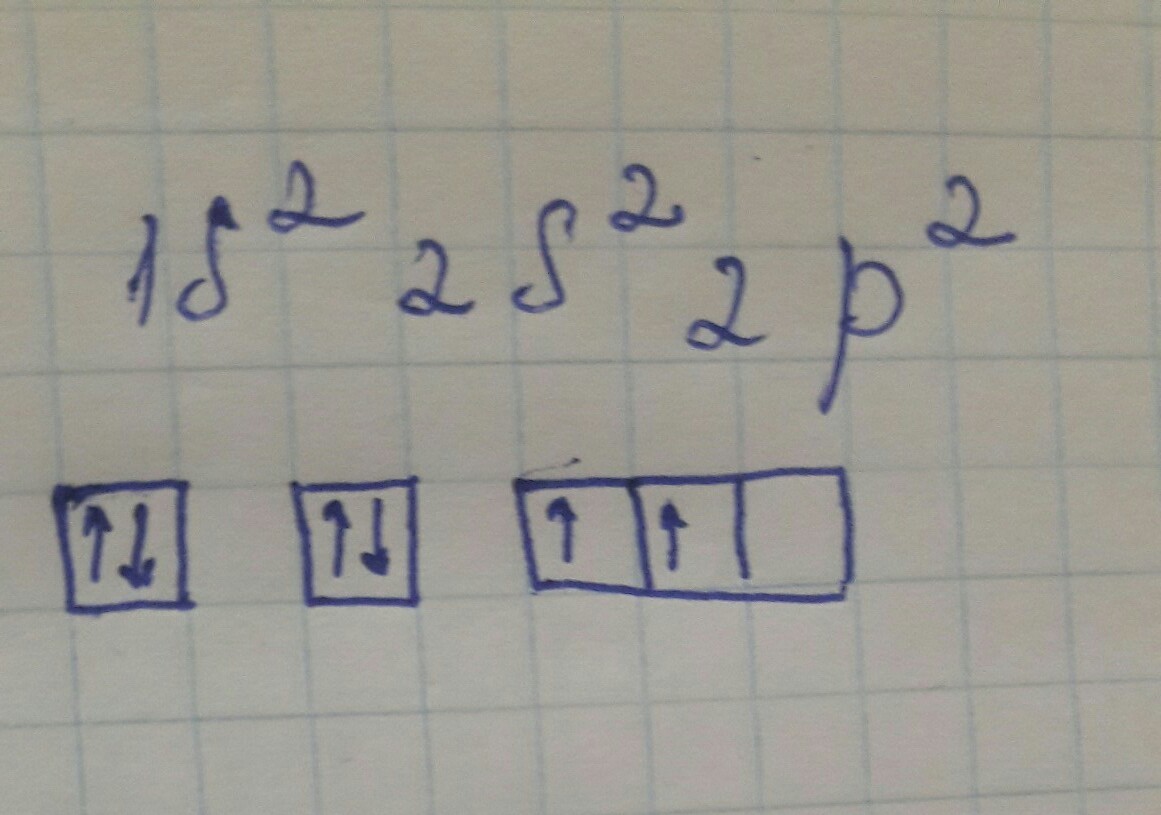 1s² 2s² 2p²
↑↓ ↑↓ ↑ ↑